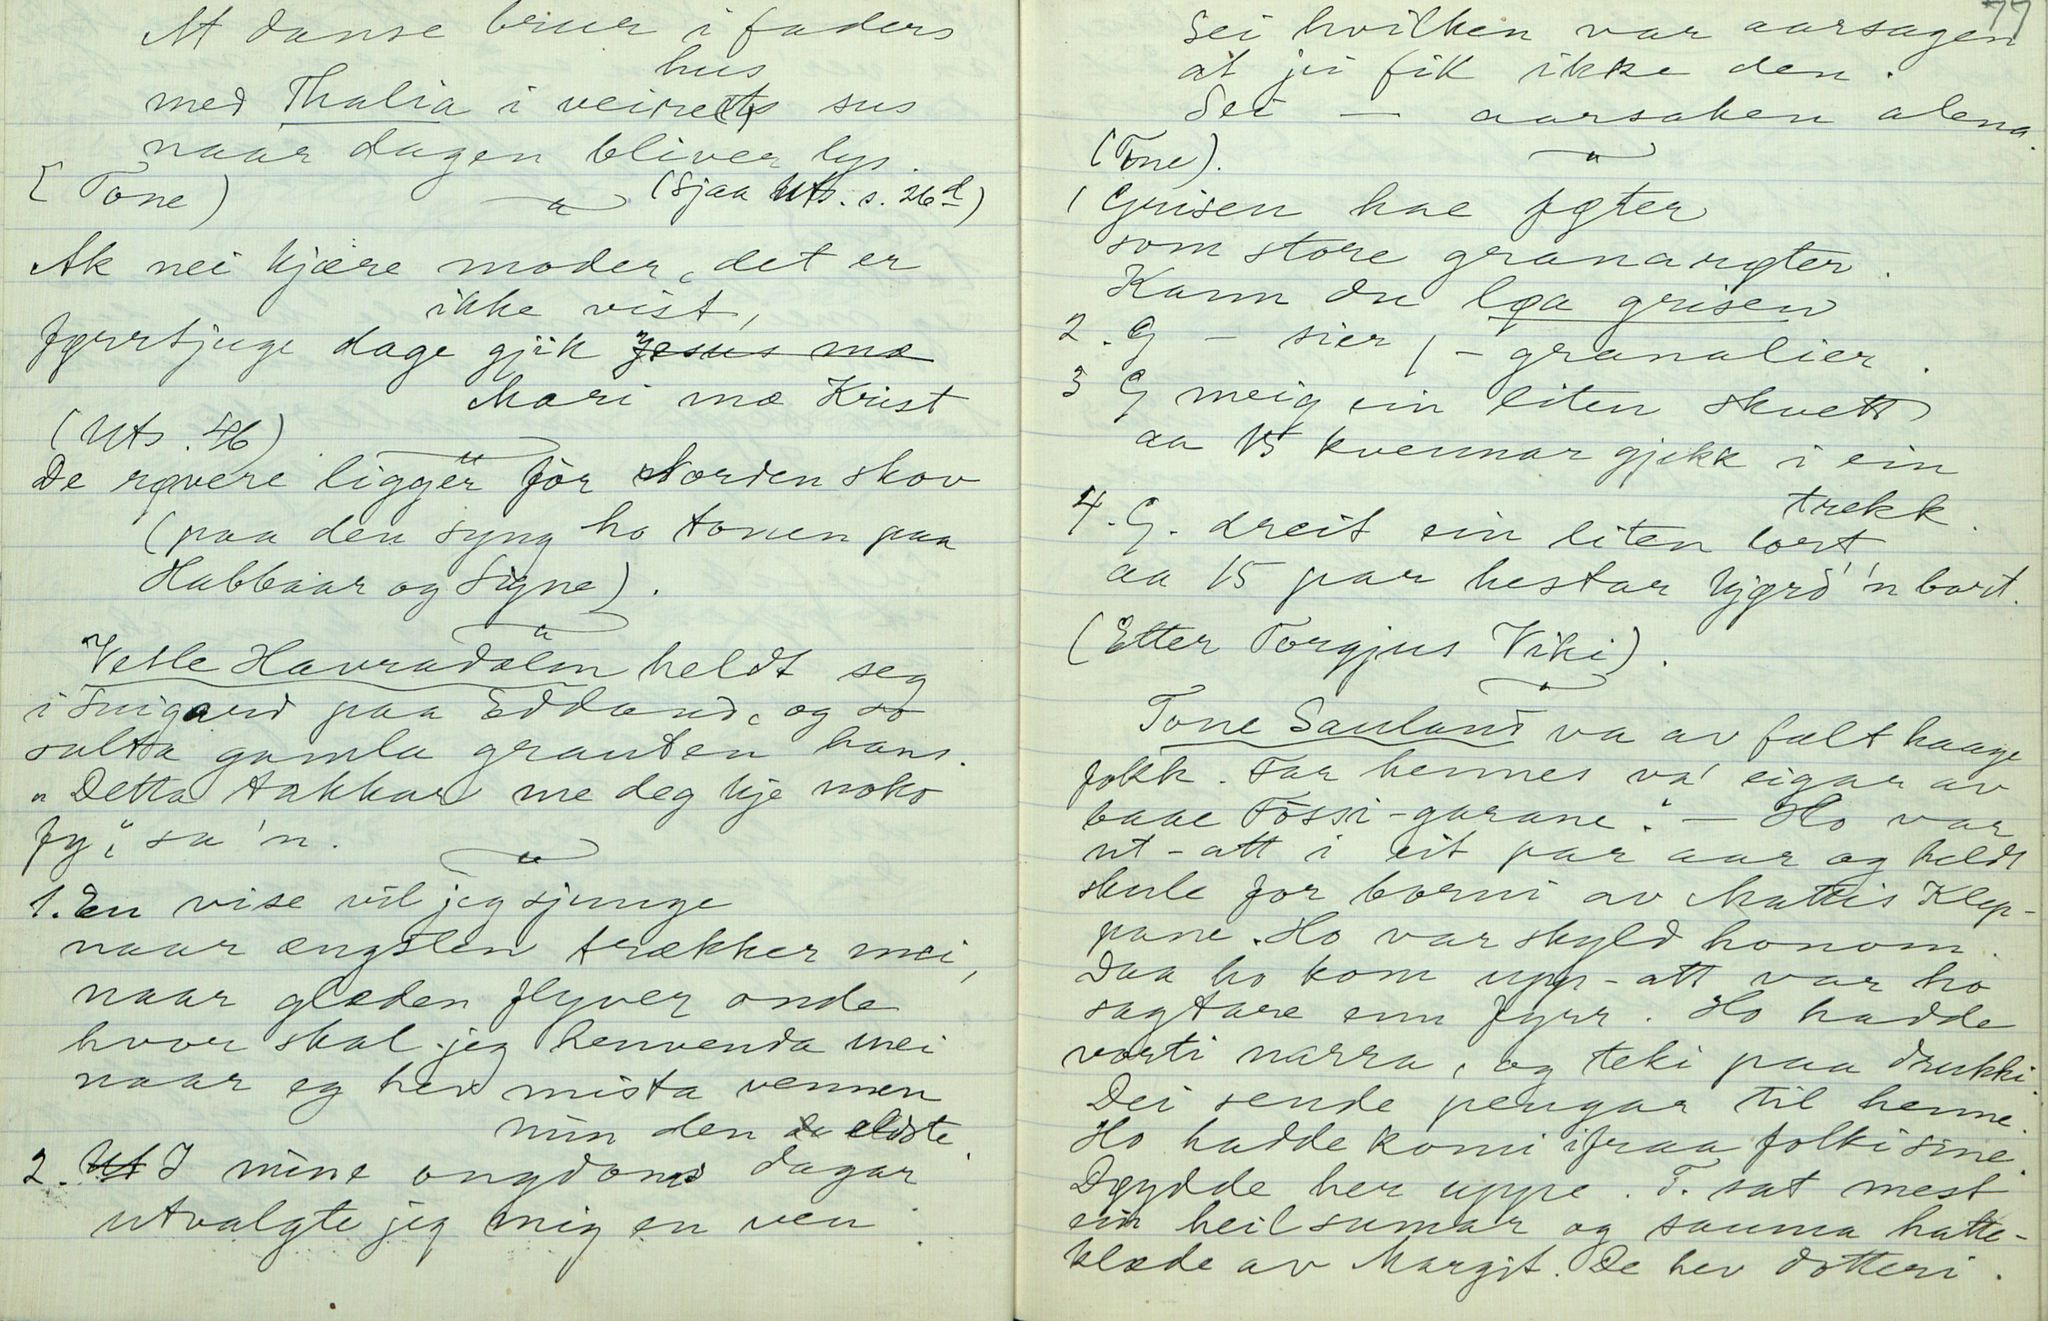 At danse bruer i faders
hus
med Thalia i veirets sus
naar dagen bliver lys.
[Tone) (Sjaa Uts. s. 26d)
Ak nei kjære moder, det er
ikke vist,
fyrrtjuge dage gjik Jesus mæ
Mari mæ Krist
(Uts. 46)
De røvere ligger før Norden skov
(paa den syng ho tonen paa
Habbaar og Signe).
Vesle Havradalen heldt seg
i Suigard paa Eddand, og so
salta gamla grauten hans.
"Detta takkar me deg kje noko
fy", sa'n.
1. En vise vil jeg sjunge
naar ængslen trækker mei,
naar glæden flyver onde
hvor skal jeg henvenda mei
naar eg her mista vennen
min den eldste.
2. Ut I mine ongdoms dagar
utvalgte jeg mig en ven.
77
Sei hvilken var aarsagen
at jei fik ikke den.
Sei — aarsaken alena.
(Tone).
1 Grisen hae føter
som store granarøter.
Kann du løa grisen
2. G — sier, — granalier.
3 G meig ein liten skvett
aa 15 kvennar gjekk i ein
trekk.
4. G. dreit ein liten lort
aa 15 par hestar kjørd'n bort.
(Etter Torgjus Viki).
Tone Sauland va av fælt haage
folkk. Far hennes va' eigar av
baae Fossi-garane". — Ho var
ut-att i eit par aar og heldt
skule for borni av Mattis Klep-
pane. Ho var skyld honom.
Daa ho kom upp-att var ho
sagtare enn fyrr. Ho hadde
vorti narra, og teki paa drukki.
Dei sende pengar til henne.
Ho hadde komi ifraa folki sine.
Døydde her uppe. T. sat mest
ein heil sumar og sauma hatte-
klæde av Margit. De hev dotteri.